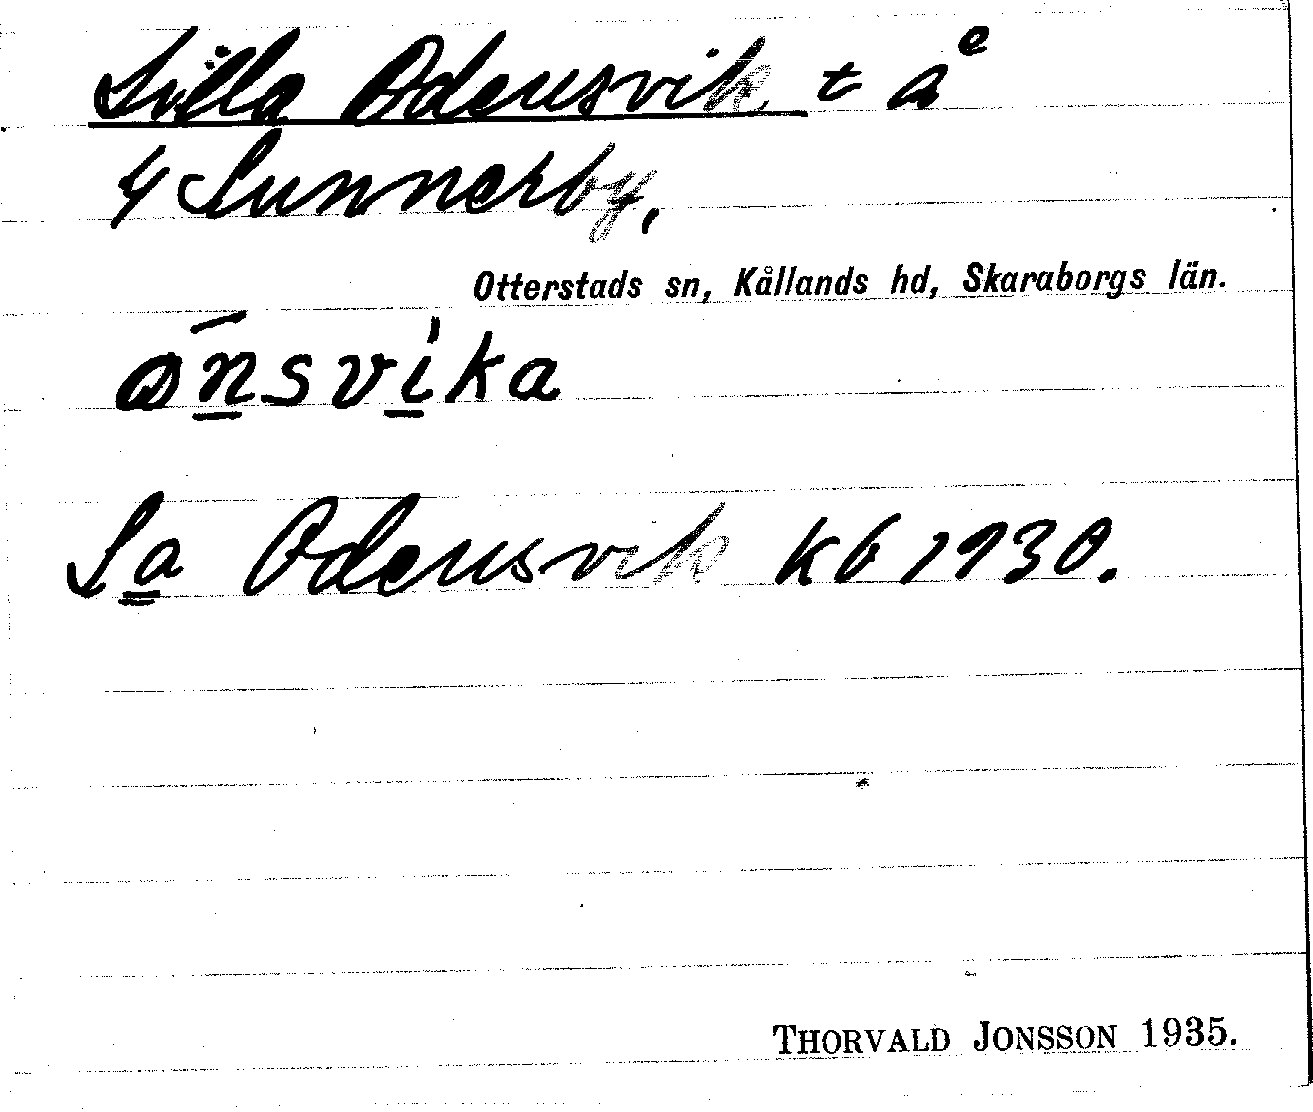 Lilla Odensvik t åe
4 Sunnerby,
Otterstads sn, Kållands hd, Skaraborgs län.
ōnsvika
Sa Odensvik kb 1930.
THORVALD JONSSON 1935.